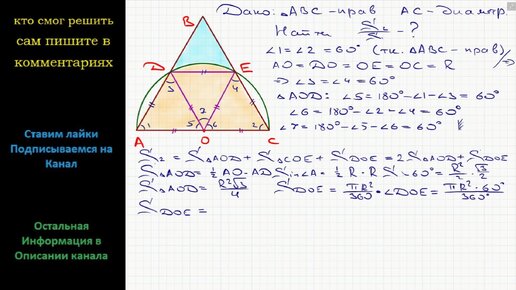 кто смог решить
сам пишите в
комментариях
Ставим лайки
Подписываемся на
Канал
Остальная
Информация в
Описании канала
B
D
E
3
4
7
1
5
6
2
A
O
C
Дано: △ABC - прав AC - диаметр.
Найти S₁/S₂ - ?
∠1 = ∠2 = 60° (т.к. △ABC - прав)
AO = DO = OE = OC = R
⇒ ∠3 = ∠4 = 60°
△AOD: ∠5 = 180° - ∠1 - ∠3 = 60°
∠6 = 180° - ∠2 - ∠4 = 60°
∠7 = 180° - ∠5 - ∠6 = 60°
S₂ = S△AOD + S△COE + SDOE = 2S△AOD + SDOE
S△AOD = 1/2 AO · AD sin∠A = 1/2 R · R sin 60° = R²/2 · √3/2
S△AOD = R²√3/4 SDOE = πR²/360° · ∠DOE = πR² · 60°/360°
SDOE =